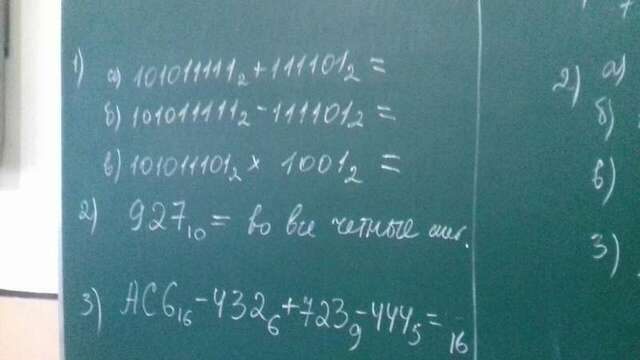 1) а) 101011111₂ + 111101₂ =
б) 101011111₂ - 111101₂ =
в) 101011101₂ × 1001₂ =
2) 927₁₀ = во все четные сис.
3) AC6₁₆ - 432₆ + 723₉ - 444₅ = ₁₆
2) а)
б)
в)
3)